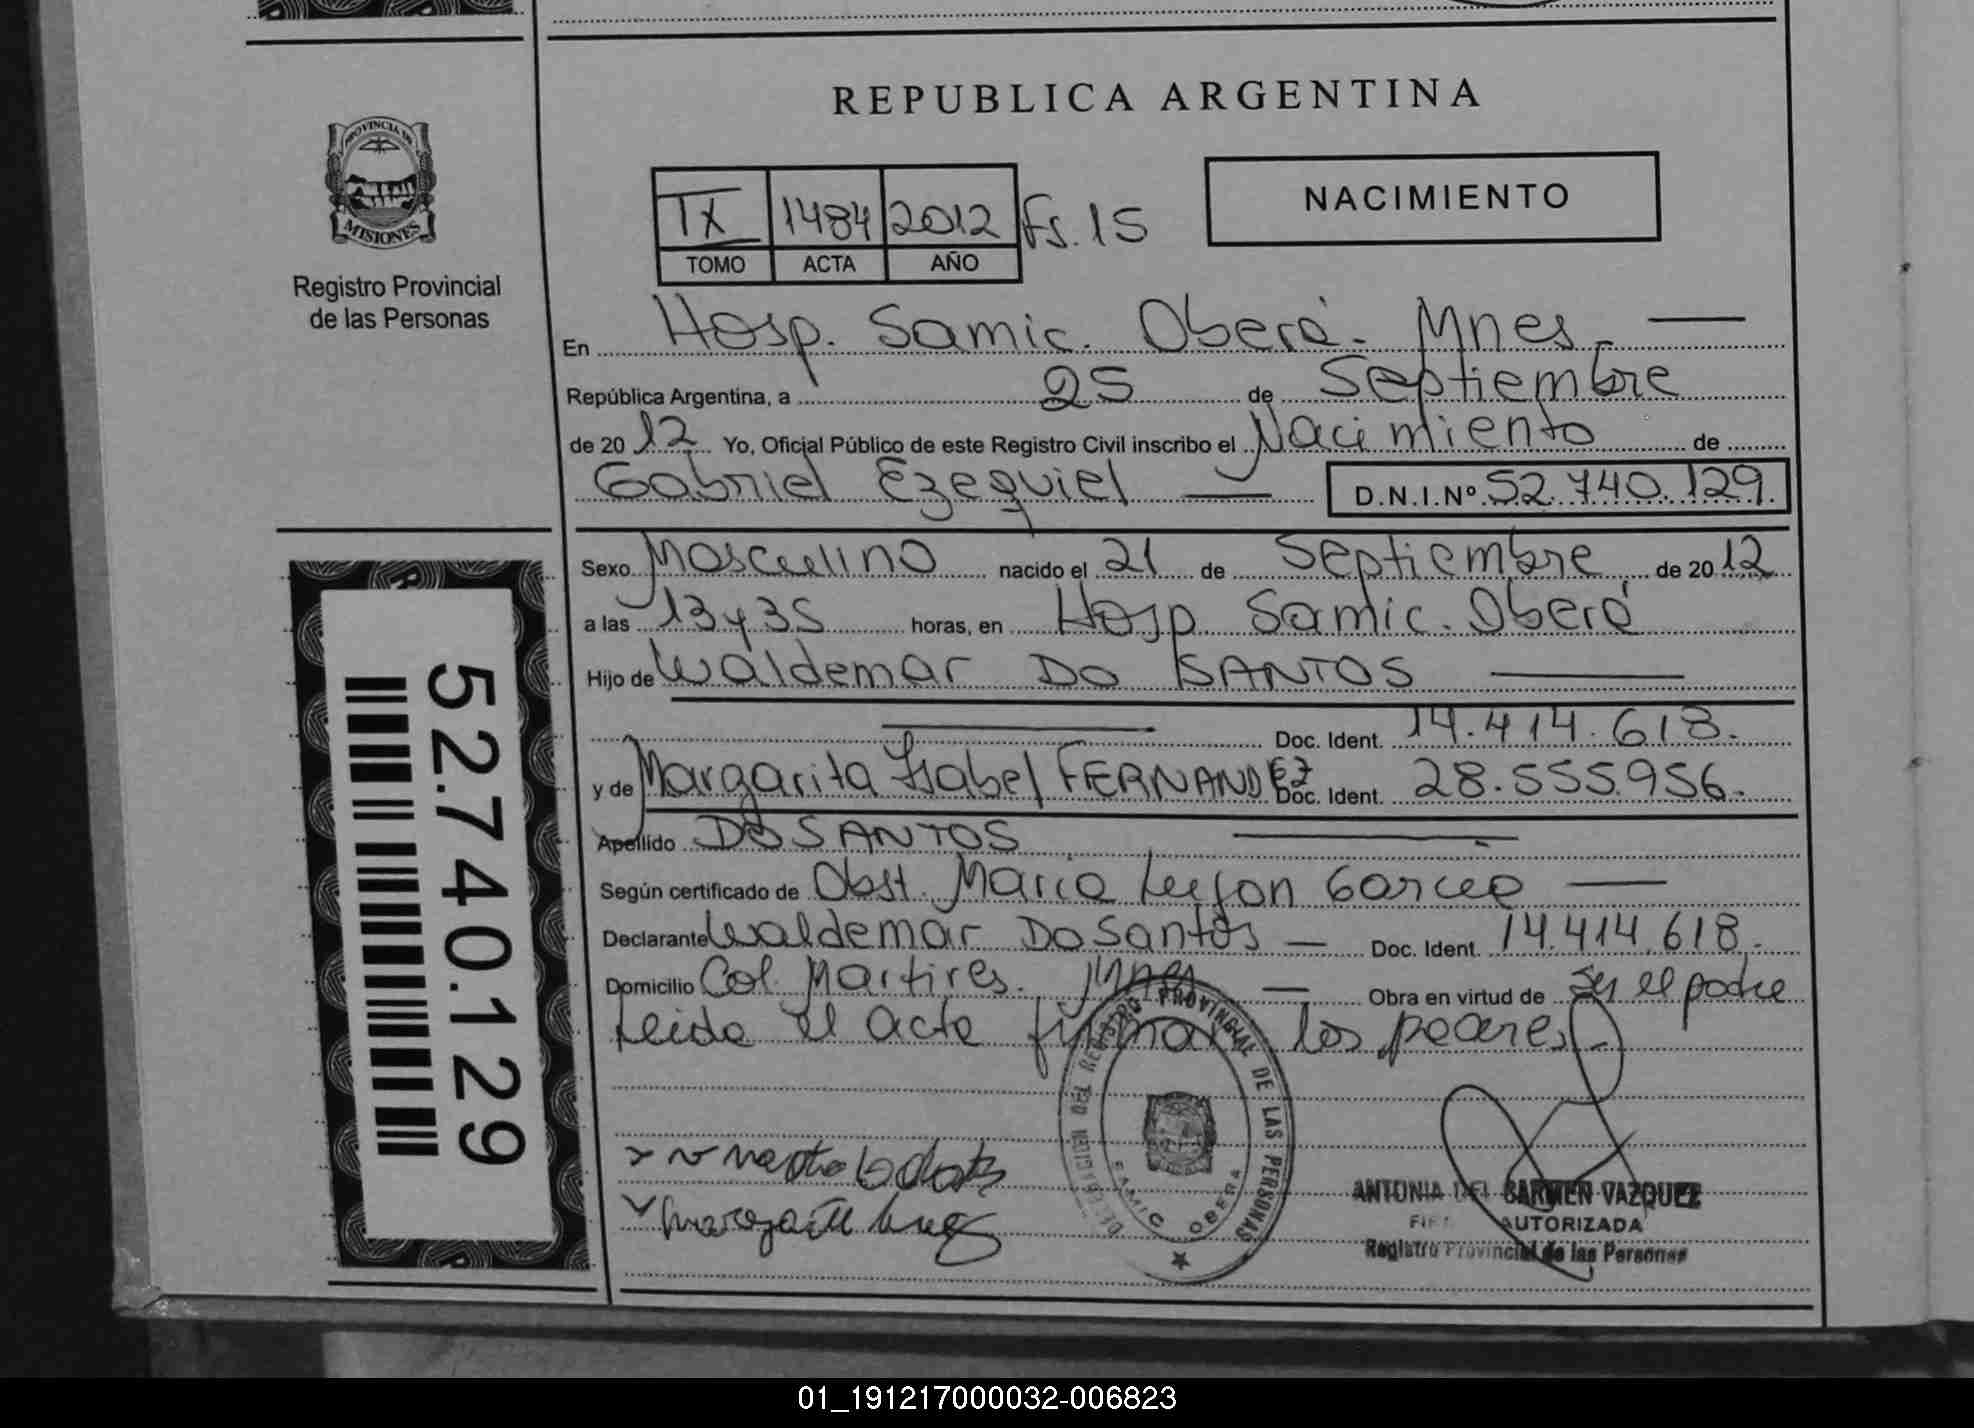 REPUBLICA ARGENTINA
PROVINCIA DE
MISIONES
Registro Provincial
de las Personas
IX 1484 2012 Fs. 15
TOMO ACTA AÑO
NACIMIENTO
En Hosp. Samic. Oberá. Mnes.
República Argentina, a 25 de Septiembre
de 2012 Yo, Oficial Público de este Registro Civil inscribo el Nacimiento de
Gabriel Ezequiel D.N.I.Nº 52.740.129
Sexo Masculino nacido el 21 de Septiembre de 2012
a las 13 y 35 horas, en Hosp Samic. Oberá
Hijo de Waldemar DO SANTOS
Doc. Ident. 14.414.618.
y de Margarita Isabel FERNANDEZ Doc. Ident. 28.555.956.
Apellido DO SANTOS
Según certificado de Obst. María Lujan Garcia
Declarante Waldemar Do Santos Doc. Ident. 14.414.618.
Domicilio Col. Martires. Mnes Obra en virtud de Ser el padre
Leida el acta firman los padres
52.740.129
DEL REGISTRO PROVINCIAL DE LAS PERSONAS
SAMIC OBERA
ANTONIA DEL CARMEN VAZQUEZ
AUTORIZADA
Registro Provincial de las Personas
01_191217000032-006823